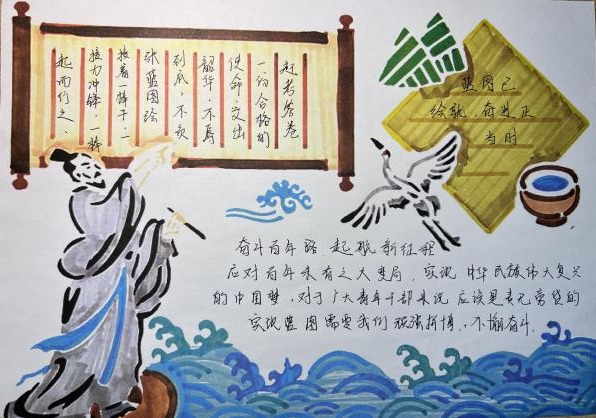 起而行之、
接力冲锋,一棒
接着一棒干,一
张蓝图绘
到底,不负
韶华,不辱
使命,交出
一份合格的
赶考答卷
蓝图已
绘就,奋进正
当时
奋斗百年路 起航新征程
应对百年未有之大变局,实现中华民族伟大复兴
的中国梦,对于广大青年干部来说应该是责无旁贷的
实现蓝图需要我们顽强拼搏,不懈奋斗.